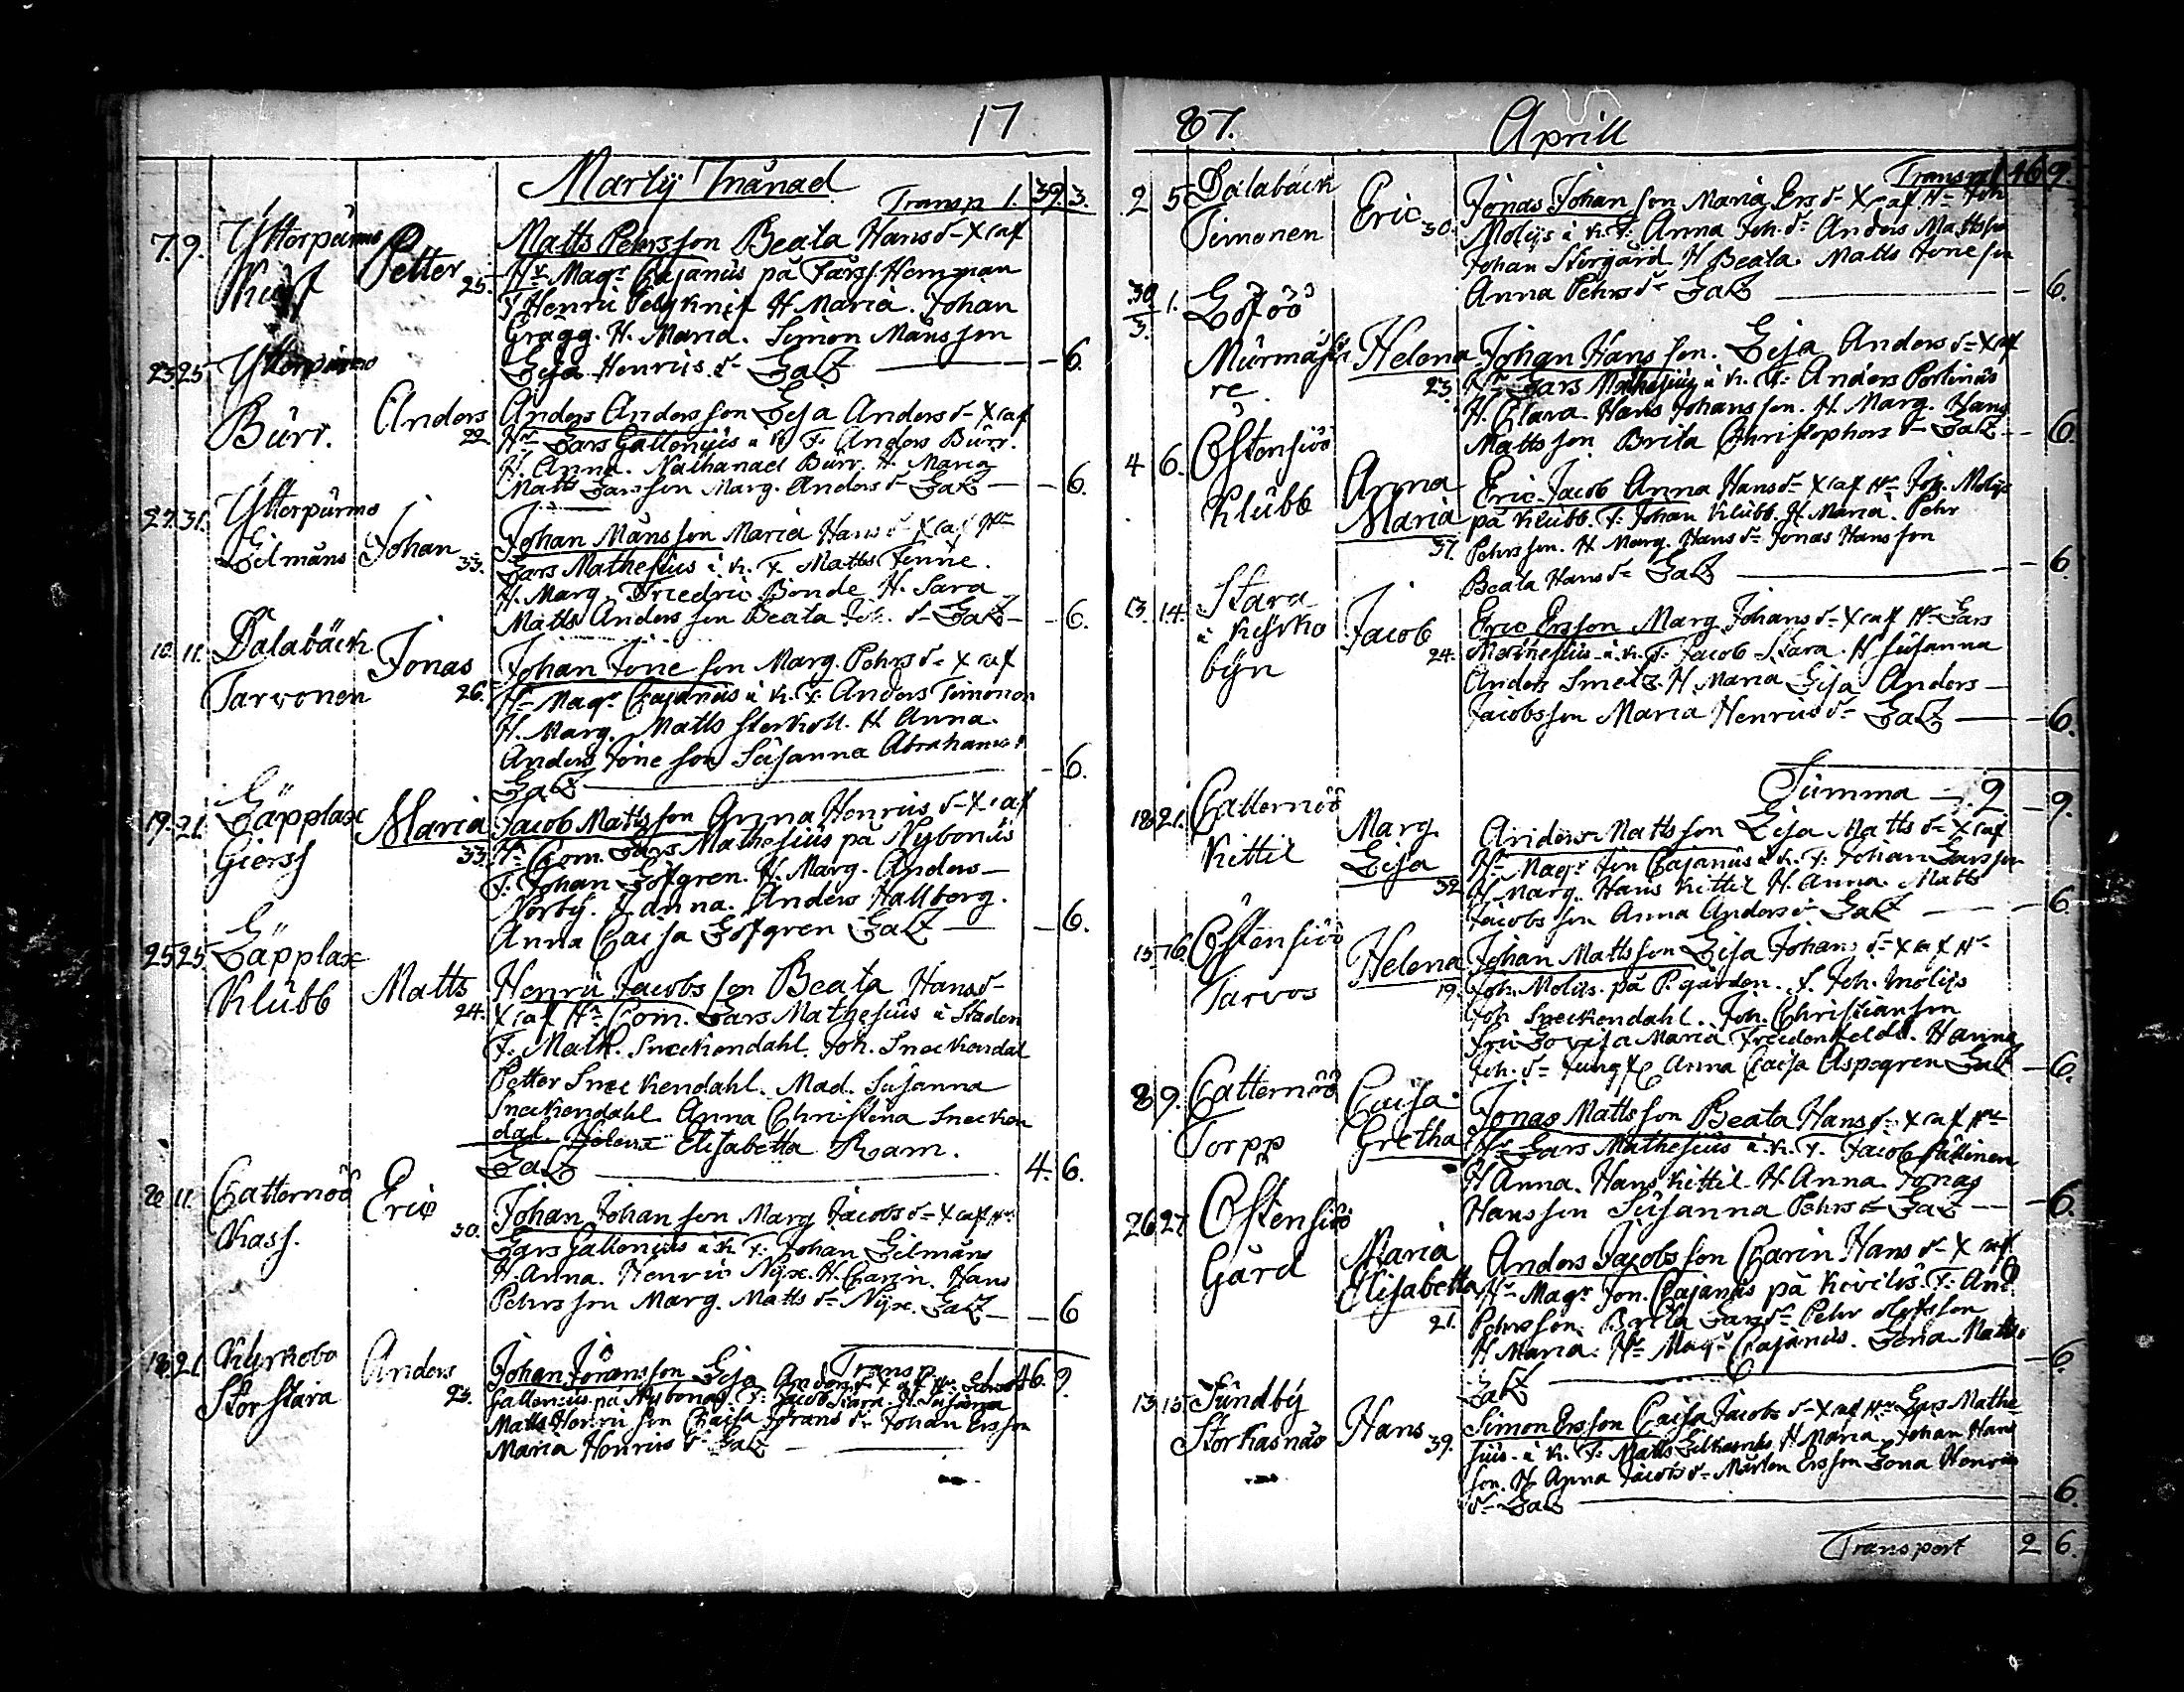 17
Martij Månad
Transp 1. 39. 3.
7. 9. Ytterpurmo Petter 25.
Matts Pehrsson Beata Hans d- X af
Hr Magr Cajanus på Färss Hemman
F Henric Pelg Knif H Maria. Johan
Gragg. H. Maria. Simon Månsson
Lisa Henrics d- Galz - 6.
23 25 Ytterpurmo
Burr. Anders 22
Anders Andersson Lisa Anders d- X af
Hr Lars Gallenius i k F: Anders Burr.
H. Anna. Nathanael Burr. H. Maria
Matts Larsson Marg. Anders d- Galz - 6.
27. 31. Ytterpurmo
Lilmåns Johan 33.
Johan Månsson Maria Hans d- X af Hr
Lars Mathesius i k. F. Matts Finne.
H. Marg. Friedric Bonde H. Sara
Matts Andersson Beata Joh. d- Galz - 6.
10. 11. Dalabäck Jonas 26.
Tarvonen
Johan Jönesson Marg. Pehrs d- X af
Hr Magr Cajanus i k. F. Anders Timonen
H. Marg. Matts H. Anna.
Anders Jönesson Susanna Abrahams d
Galz - 6.
19. 21. Läpplax Maria 33.
Gierss
Jacob Mattsson Anna Henrics d- X af
Hr Com. Lars Mathesius på Nybonäs
F. Johan Löfgren. H. Marg. Anders
Norby. H anna. Anders Hallborg.
Anna Caisa Löfgren Galz - 6.
25 25 Läpplax
Klubb Matts 24.
Henric Jacobsson Beata Hans d-
X af Hr Com. Lars Mathesius i Staden
F. Math. Sneckendahl. Joh. Sneckendal
Petter Sneckendahl. Mad. Susanna
Sneckendahl. Anna Christina Snecken
dal Helena Elisabetta Ram.
Galz 4. 6.
11. Cattternöö Eric 30.
Kass.
Johan Johansson Marg Jacobs d- X af Hr
Lars Gallenius i k F: Johan Lilmåns
H. Anna. Henric Nyx. H. Carin. Hans
Pehrsson Marg. Matts d- Nyx. Galz - 6
Transp. 1. 46. 9.
18 21 Kyrkoby Anders 23.
Storstara
Johan Jöransson Lisa Anders d- X af Hr
Gallenius på Nybonäs. F: Jacob Stara H. Susanna
Matts Henricsson Caisa Jörans d- Johan Ersson
Maria Henrics d- Galz
87. Aprill
Transp 1 46 9.
2 5 Dalabäck Eric 30.
Timonen
Jonas Johansson Maria Ers d- X af Hr Joh
Molijs i k. F: Anna Joh. d- Anders Mattsson
Johan Storgård H Beata. Matts Jönesson
Anna Pehrs d- Galz - 6.
30/3 1. Löföö
Murmästa
re. Helena 23.
Johan Hansson. Lisa Anders d- X af
Hr Lars Mathesius i k. F: Anders Portinås
H. Clara. Hans Johansson. H. Marg. Hans
Mattsson Brita Christophers d- Galz - 6.
4 6. Östensiöö
Klubb Anna Maria 37.
Eric Jacob Anna Hans d- X af Hr Joh. Molijs
på Klubb. F: Johan Klubb. H. Maria. Pehr
Pehrsson. H. Marg. Hans d- Jonas Hansson
Beata Hans d- Galz - 6.
13. 14. Stara
i Kyrko
byn Jacob 24.
Eric Ersson Marg Johans d- X af Hr Lars
Mathesius i k. F: Jacob Stara. H Susanna
Anders Smeds. H. Maria Lisa Anders
Jacobsson Maria Henrics d- Galz - 6.
Summa - 2 - 9.
18 21. Catternöö
Kittil Marg. Lisa 32
Anders Mattsson Lisa Matts d- X af
Hr Magr Jon Cajanus i k. F: Johan Larsson
H Marg. Hans Kittil H. Anna. Matts
Jacobsson Anna Anders d- Galz - 6.
15 16. Östensiöö Helena 19.
Tarvos
Johan Mattsson Lisa Johans d- X af Hr
Joh. Molijs. på P. gården. F. Joh. Molijs
Joh Sneckendahl. Joh. Christiansson
Fru Lovisa Maria Freidenfeldt. Hanna
Joh. d- Jungf Anna Caisa Aspegren Galz - 6.
8 9. Catternöö Caisa Gretha
Torpp
Jonas Mattsson Beata Hans d- X af Hr
Hr Lars Mathesius i k. F. Jacob Pällinen
H Anna. Hans Kittil H. Anna Jonas
Hansson Susanna Pehrs d- Galz - 6.
26 27 Östensiöö
Gård Maria Elisabetta 21.
Anders Jacobsson Carin Hans d- X af
Hr Magr Jon. Cajanus på Kivilös. F: And.
Pehrsson. Brita Lars d- Pehr Olofsson
H Maria. Hr Magr Cajanus. Lena Matts
Galz - 6.
13 15 Sundby
Storkasnäs Hans 39.
Simon Ersson Caisa Jacobs d- X af Hr Lars Mathe
sius i k. F: Matts Lillkasnäs H Maria. Johan Hans
son. H. Anna Jacobs d- Mårten Ersson Lena Henrics
d- Galz - 6.
Transport 2 6.